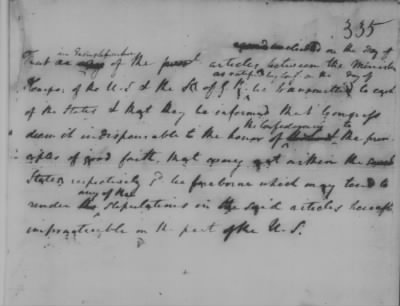 335
agreed & concluded on the day of
an Exemplification
That of the prov.l articles between the Minister
as ratified by Cong. on the day of
Plenipos. of the U.S. & the K. of G. B. be transmitted to each
of the States & that they be informed that Congress
deem it indispensable to the honor of the Confederacy & to the prin
ciples of good faith, that every act within the
States respectively be foreborne which may tend to
any of the
render stipulations in the said articles hereafter
impracticable on the part of the U.S.